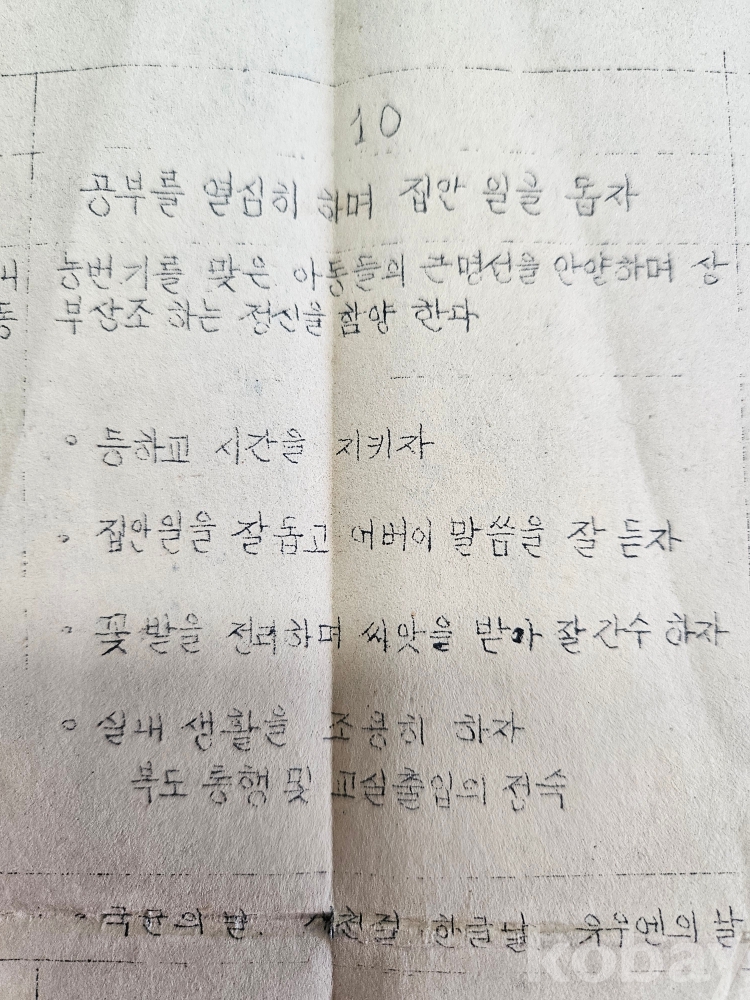 10
공부를 열심히 하며 집안 일을 돕자
농번기를 맞은 아동들의 근면성을 안양하며 상
부상조 하는 정신을 함양 한다
◦ 등하교 시간을 지키자
◦ 집안일을 잘돕고 어버이 말씀을 잘 듣자
◦ 꽃밭을 전리하며 씨앗을 받아 잘 간수 하자
◦ 실내 생활을 조용히 하자
복도 통행 및 교실출입의 정숙
국군의 날. 개천절 한글날 유우엔의 날
kobay